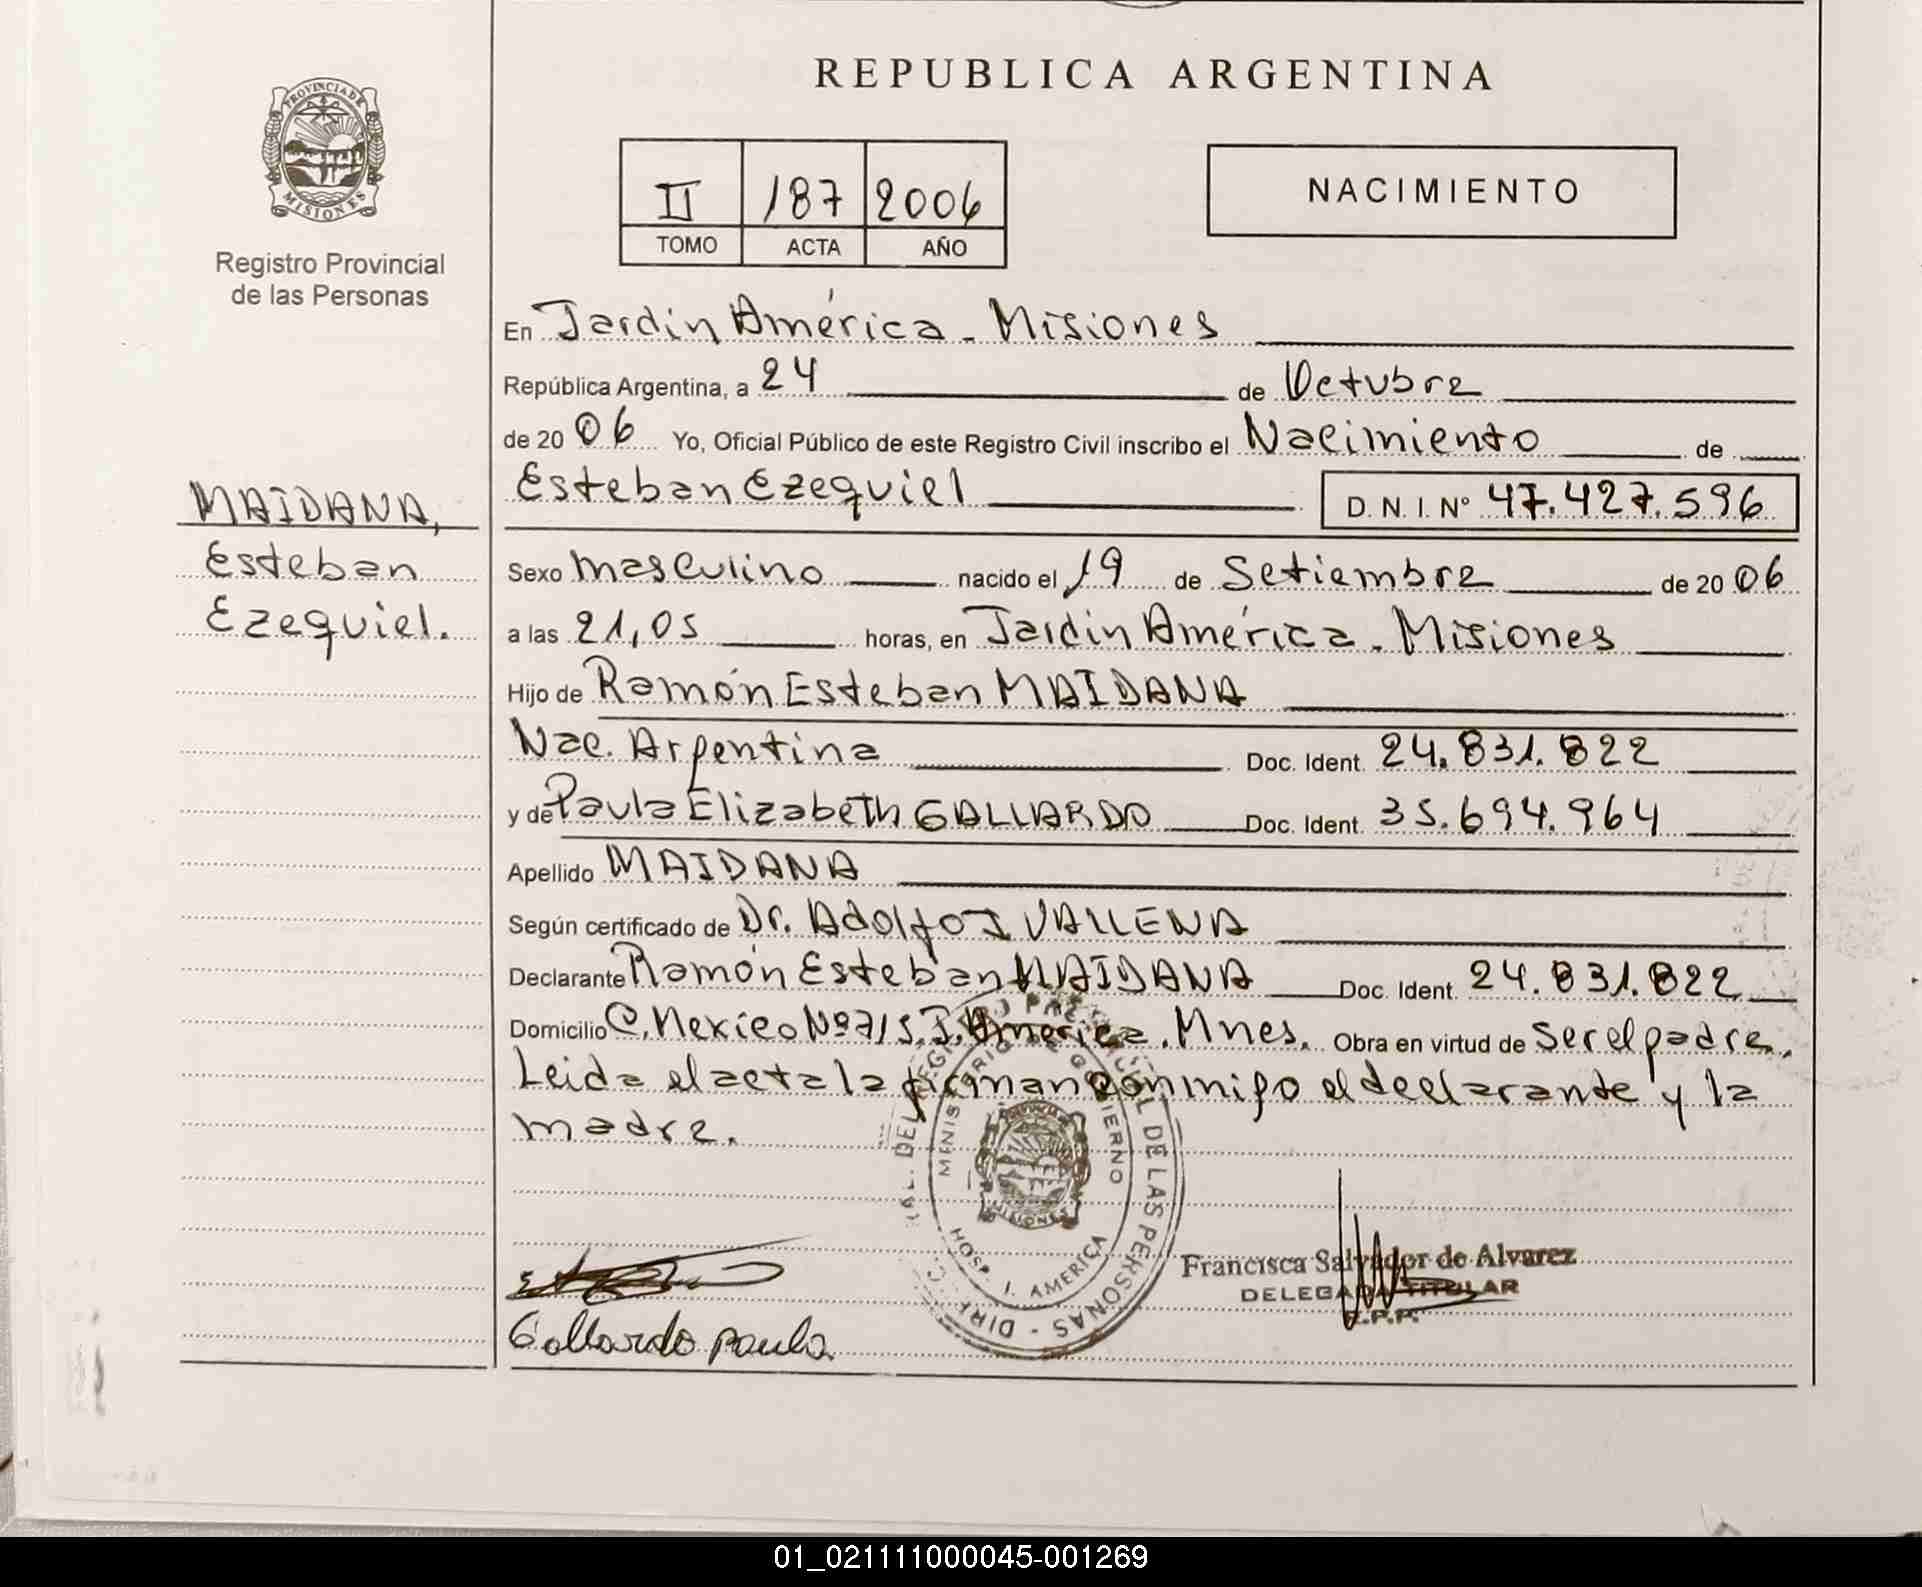 REPUBLICA ARGENTINA
PROVINCIA DE
MISIONES
Registro Provincial
de las Personas
II 187 2006
TOMO ACTA AÑO
NACIMIENTO
MAIDANA,
Esteban
Ezequiel.
En Jardín América - Misiones
República Argentina, a 24 de Octubre
de 20 06 Yo, Oficial Público de este Registro Civil inscribo el Nacimiento de
Esteban Ezequiel D. N. I. Nº 47.427.596
Sexo masculino nacido el 19 de Setiembre de 20 06
a las 21,05 horas, en Jardín América. Misiones
Hijo de Ramón Esteban MAIDANA
Nac. Argentina Doc. Ident. 24.831.822
y de Paula Elizabeth GALLARDO Doc. Ident. 35.694.964
Apellido MAIDANA
Según certificado de Dr. Adolfo J VALLENA
Declarante Ramón Esteban MAIDANA Doc. Ident. 24.831.822
Domicilio C. Mexico Nº 715 J. America. Mnes. Obra en virtud de ser el padre.
Leida el acta la firman conmigo el declarante y la
madre.
DE LAS PERSONAS - DIR
GOBIERNO
HOSP. J. AMERICA
MISIONES
Francisca Salvador de Alvarez
DELEGADA TITULAR
Gallardo paula
01_021111000045-001269